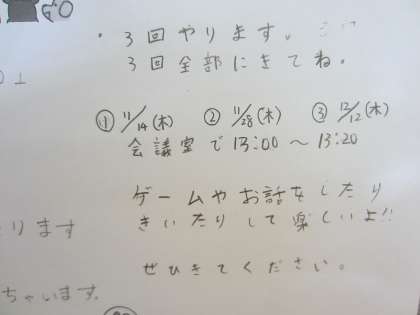 GO
・3回やります。
3回全部にきてね。
① 11/14(木) ② 11/28(木) ③ 12/12(木)
会議室で13:00〜13:20
ゲームやお話をしたり
きいたりして楽しいよ!!
ります
ぜひきてください。
ちゃいます。